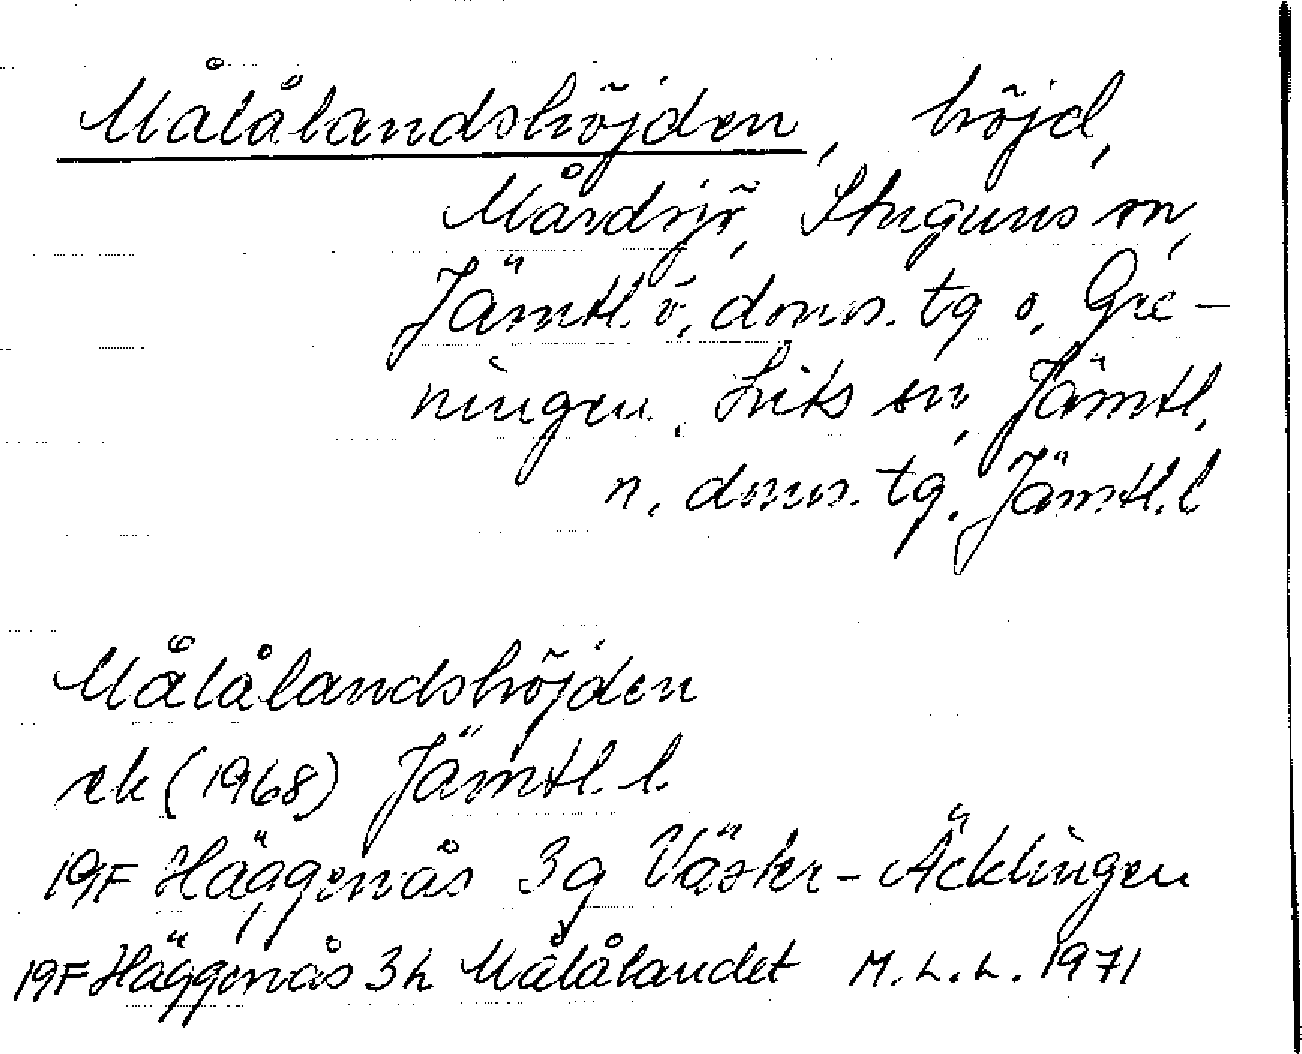 Målålandshöjden, höjd,
Mårdsjö, Stuguns sn,
Jämtl. ö. doms. tg o. Gre-
ningen, Lits sn, Jämtl.
n. doms. tg. Jämtl. l
Målålandshöjden
ek (1968) Jämtl. l.
19F Häggenås 3g Väster-Äcklingen
19F Häggenås 3h Målålandet M.L.L. 1971